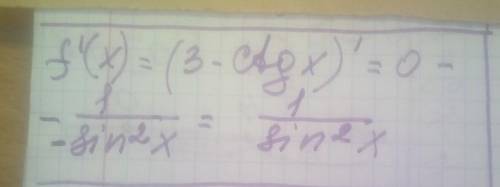 f'(x) = (3 - ctg x)' = 0 -
- 1/-sin²x = 1/sin²x